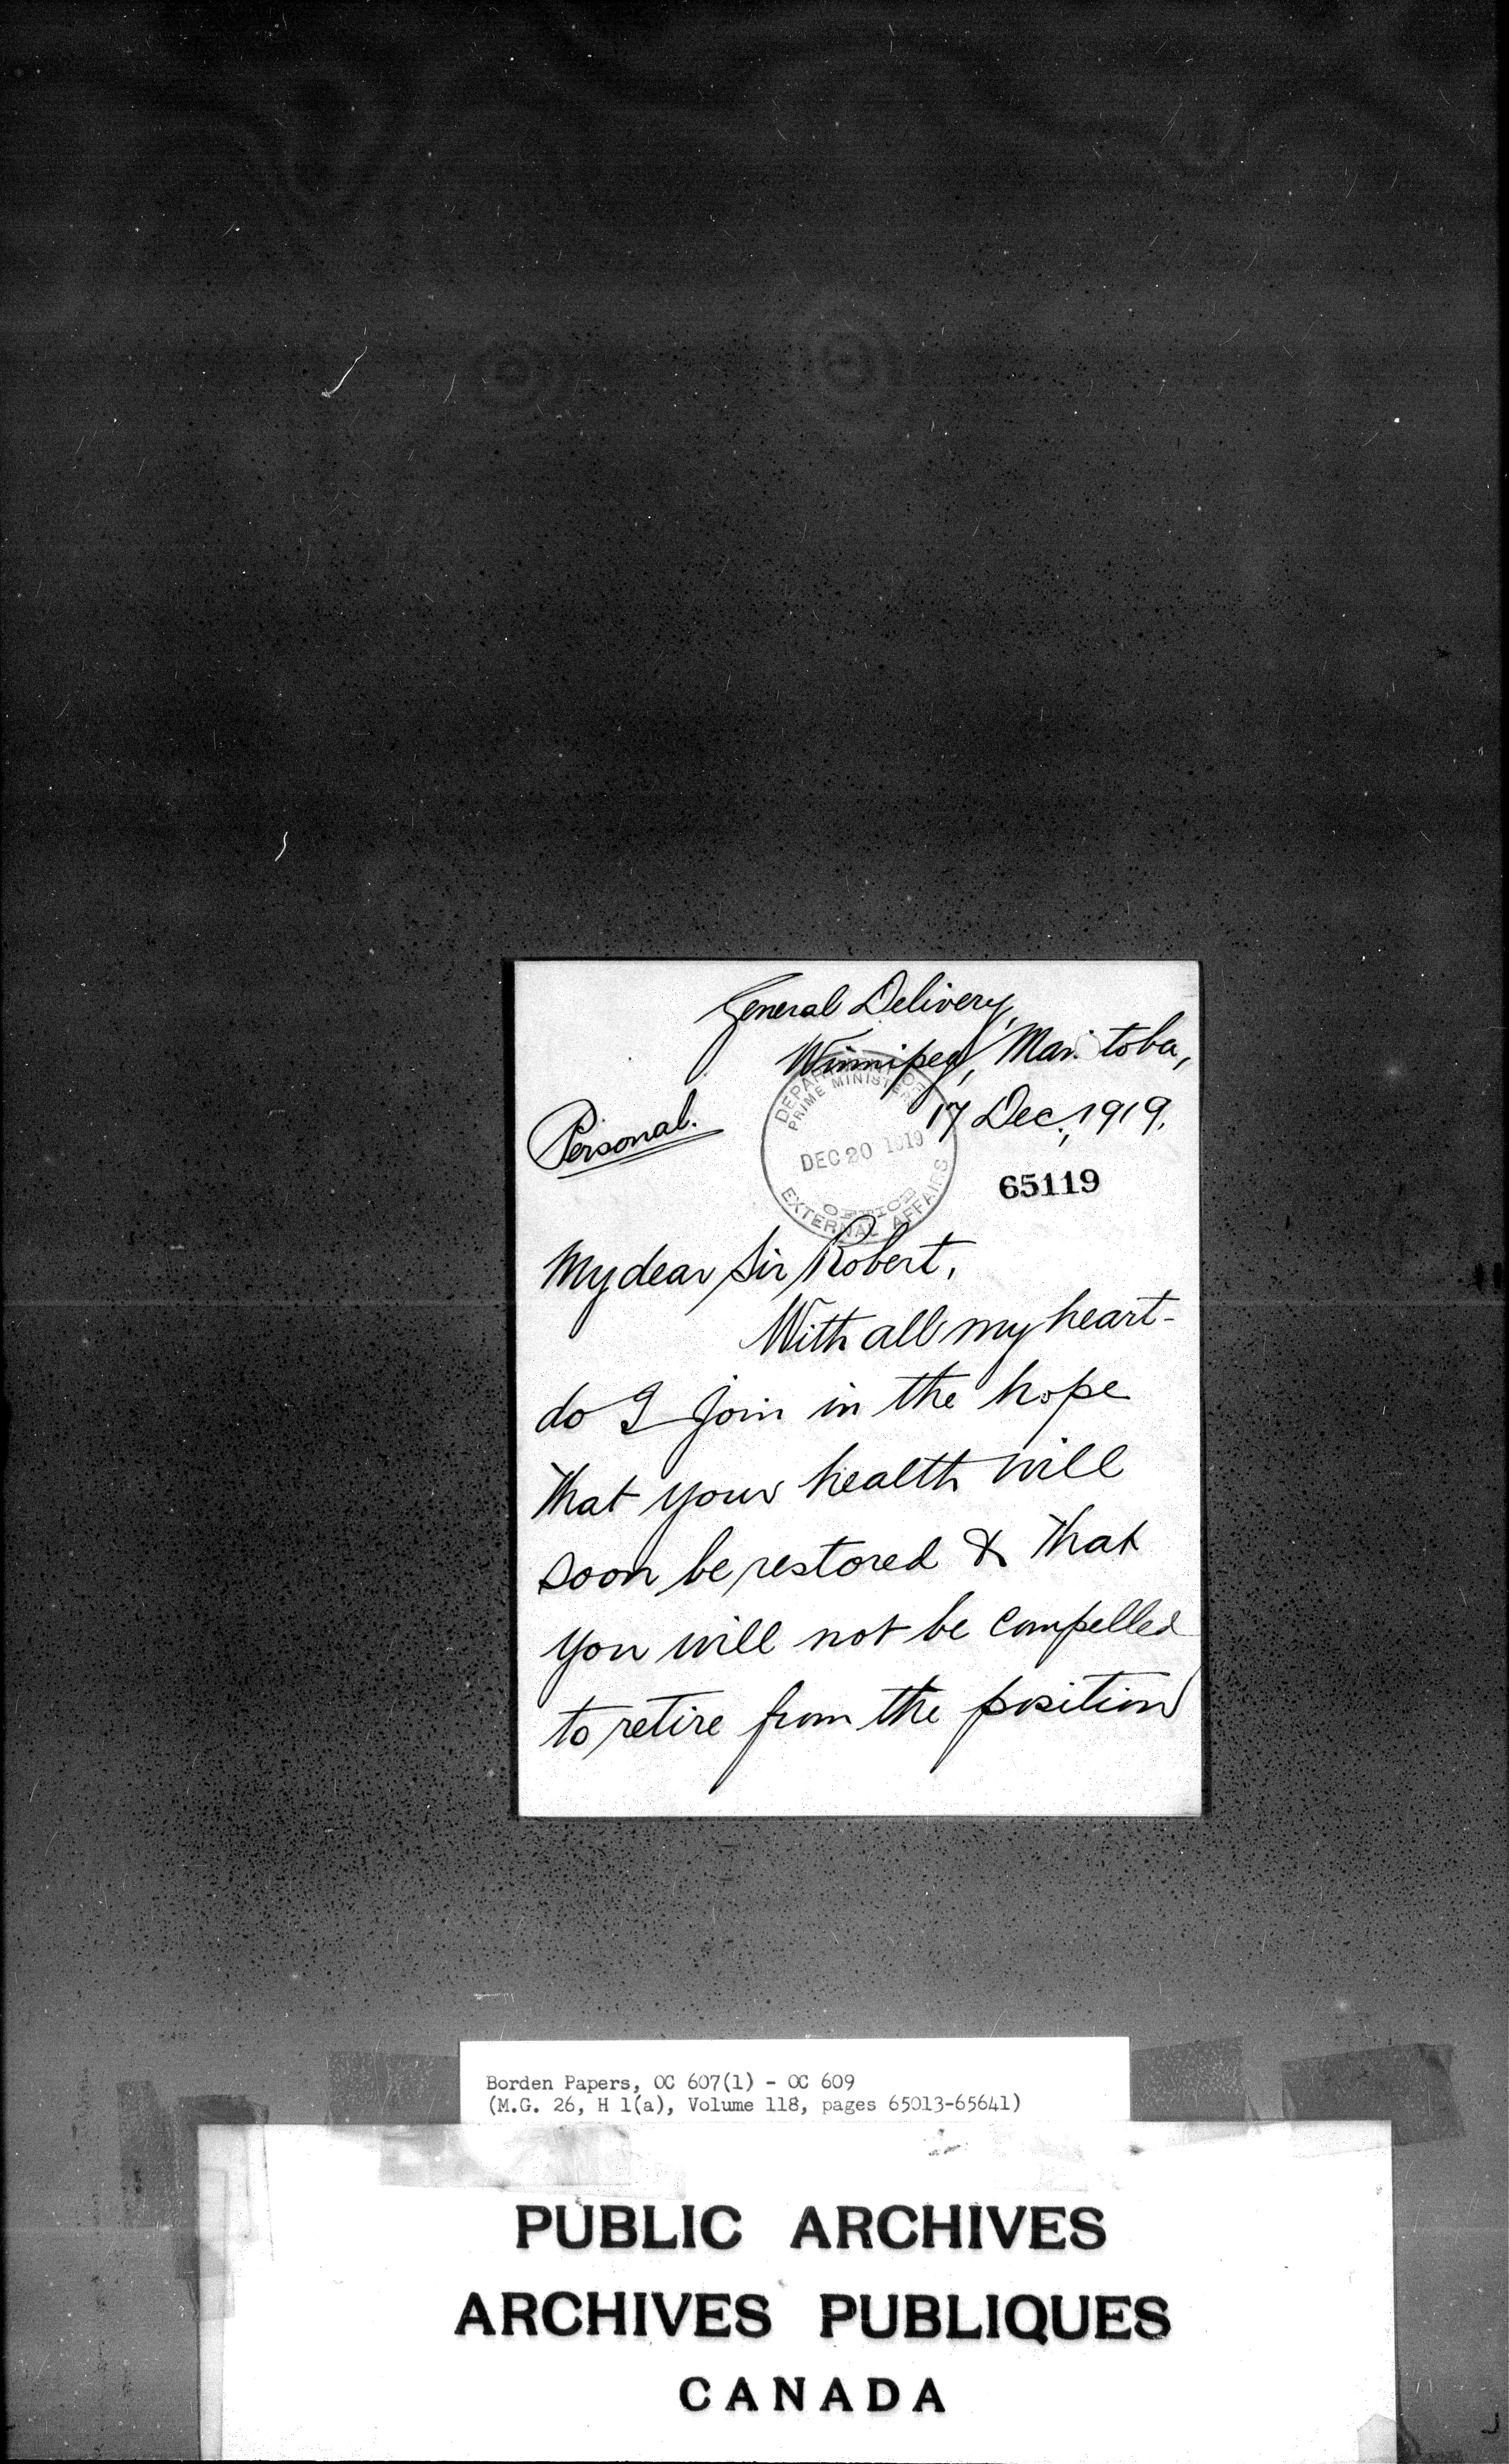 General Delivery,
Winnipeg, Manitoba,
17 Dec., 1919.
Personal.
DEPARTMENT OF
PRIME MINISTER'S
DEC 20 1919
OFFICE
EXTERNAL AFFAIRS
65119
My dear Sir Robert,
With all my heart-
do I join in the hope
that your health will
soon be restored & that
you will not be compelled
to retire from the position
Borden Papers, OC 607(1) - OC 609
(M.G. 26, H 1(a), Volume 118, pages 65013-65641)
PUBLIC ARCHIVES
ARCHIVES PUBLIQUES
CANADA